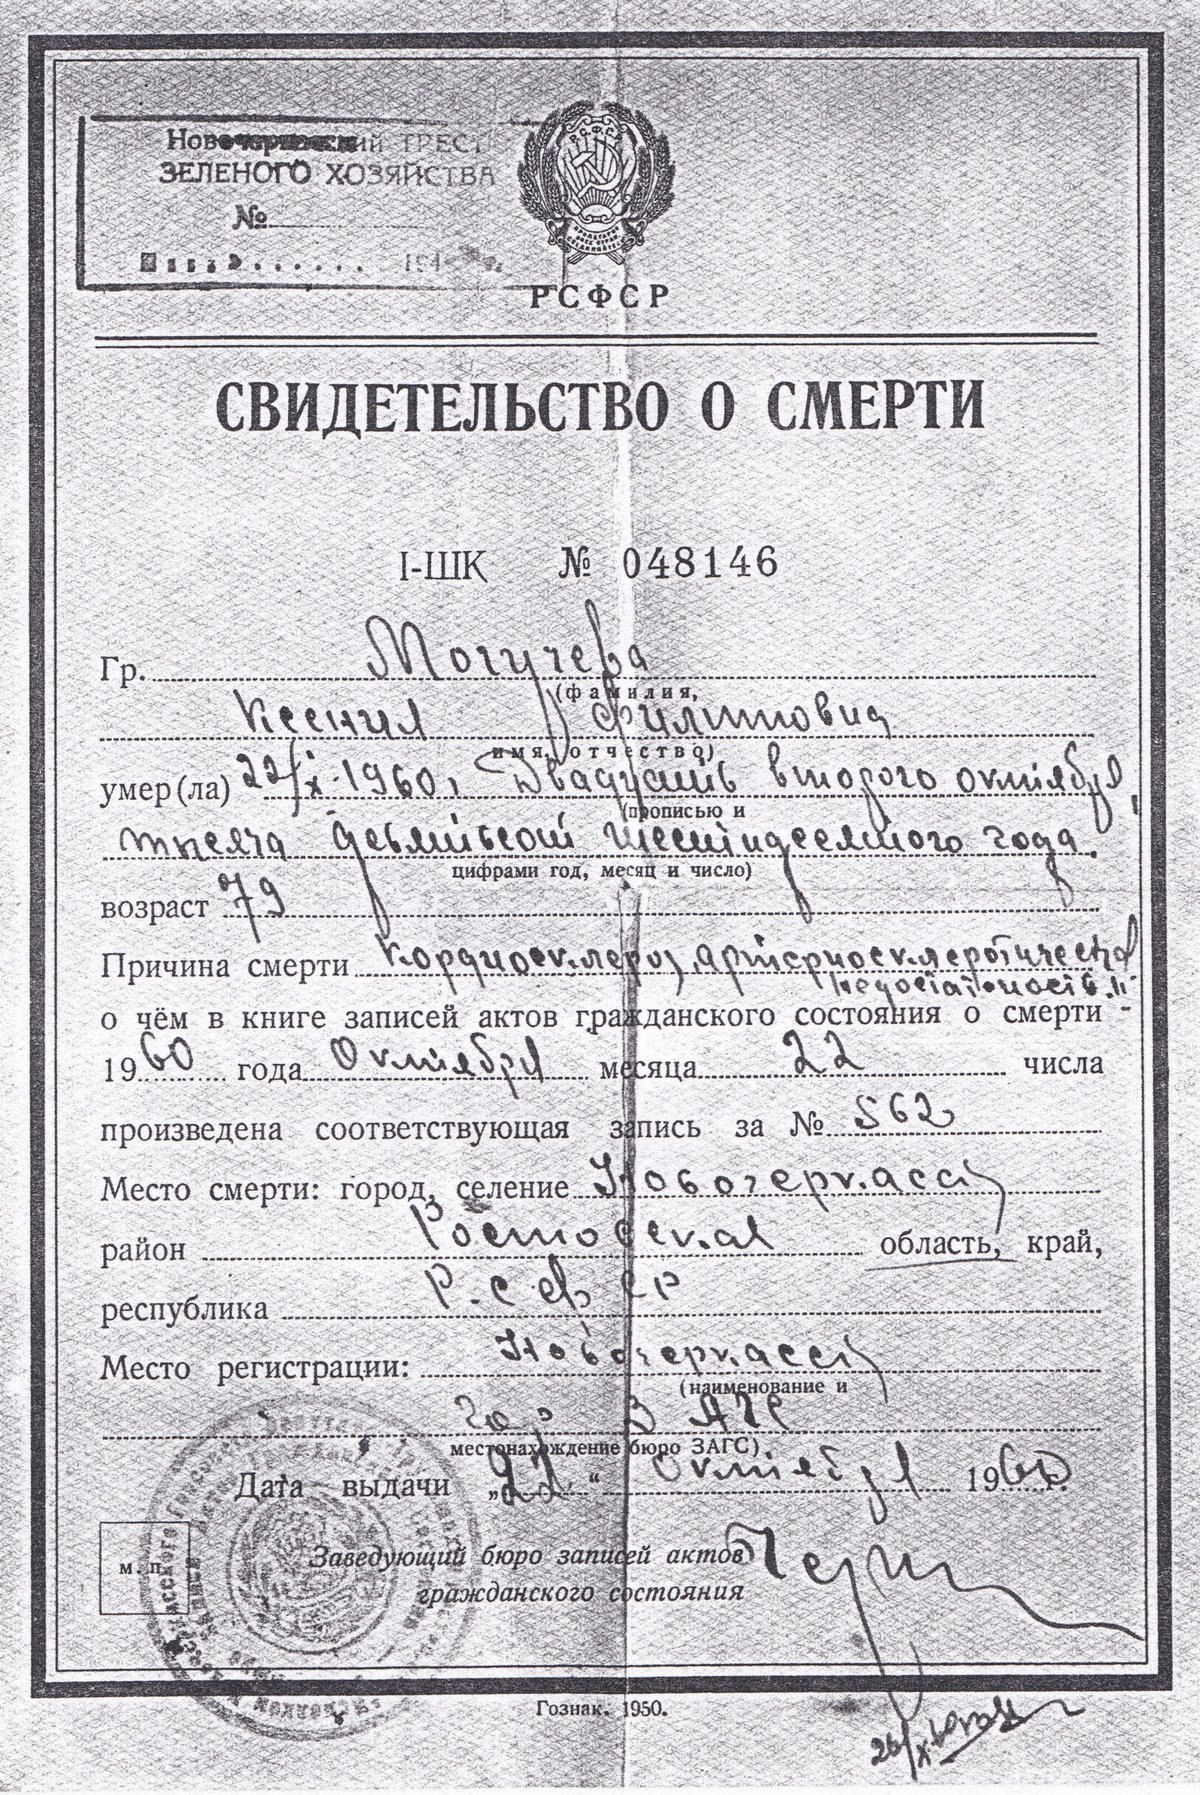 ТРЕСТ
ЗЕЛЕНОГО ХОЗЯЙСТВА
№
РСФСР
РСФСР
СВИДЕТЕЛЬСТВО О СМЕРТИ
I-ШК № 048146
Гр. Могучева
(фамилия,
Ксения Филипповна
имя, отчество)
умер(ла) 22/X-1960, Двадцать второго октября,
(прописью и
тысяча девятьсот шестидесятого года.
цифрами год, месяц и число)
возраст 79
Причина смерти кордиосклероз, артериосклеротическая
недостаточность II
о чём в книге записей актов гражданского состояния о смерти
1960 года Октября месяца 22 числа
произведена соответствующая запись за № 562
Место смерти: город, селение Новочеркасск
район Ростовская область, край,
республика РСФСР
Место регистрации: Новочеркасск
(наименование и
гор ЗАГС
местонахождение бюро ЗАГС)
Дата выдачи „22“ Октября 1960г.
м. п.
Заведующий бюро записей актов
гражданского состояния
Гознак. 1950.
26/X